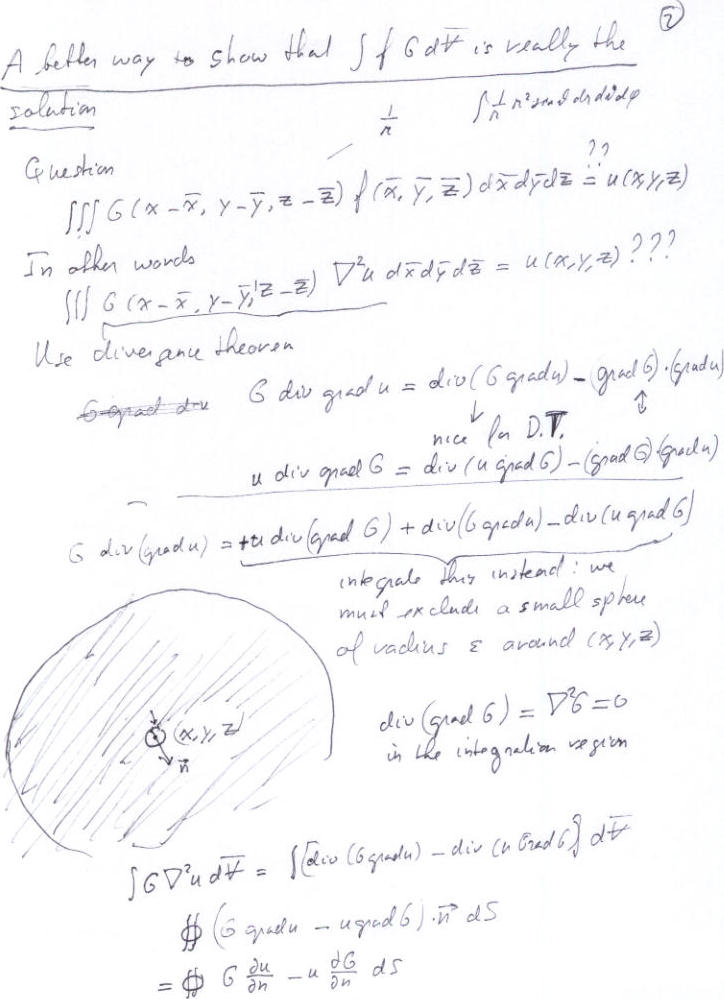 ②
A better way to show that ∫ f G dV̅ is really the
solution
1/r ∫ 1/r r² sinϑ dr dϑ dφ
Question
∭ G (x - x̅, y - y̅, z - z̅) f (x̅, y̅, z̅) dx̅ dy̅ dz̅ =?? u (x, y, z)
In other words
∭ G (x - x̅, y - y̅, z - z̅) ∇²u dx̅ dy̅ dz̅ = u (x, y, z) ???
Use divergence theorem
G grad div G div grad u = div (G grad u) - (grad G) · (grad u)
nice for D.T.
u div grad G = div (u grad G) - (grad G) · (grad u)
G div (grad u) = +u div (grad G) + div (G grad u) - div (u grad G)
integrate this instead : we
must exclude a small sphere
of radius ε around (x, y, z)
(x, y, z)
n⃗
div (grad G) = ∇²G = 0
in the integration region
∫ G ∇²u dV̅ = ∫ [div (G grad u) - div (u grad G)] dV̅
∯ (G grad u - u grad G) · n⃗ dS
= ∯ G ∂u/∂n - u ∂G/∂n dS